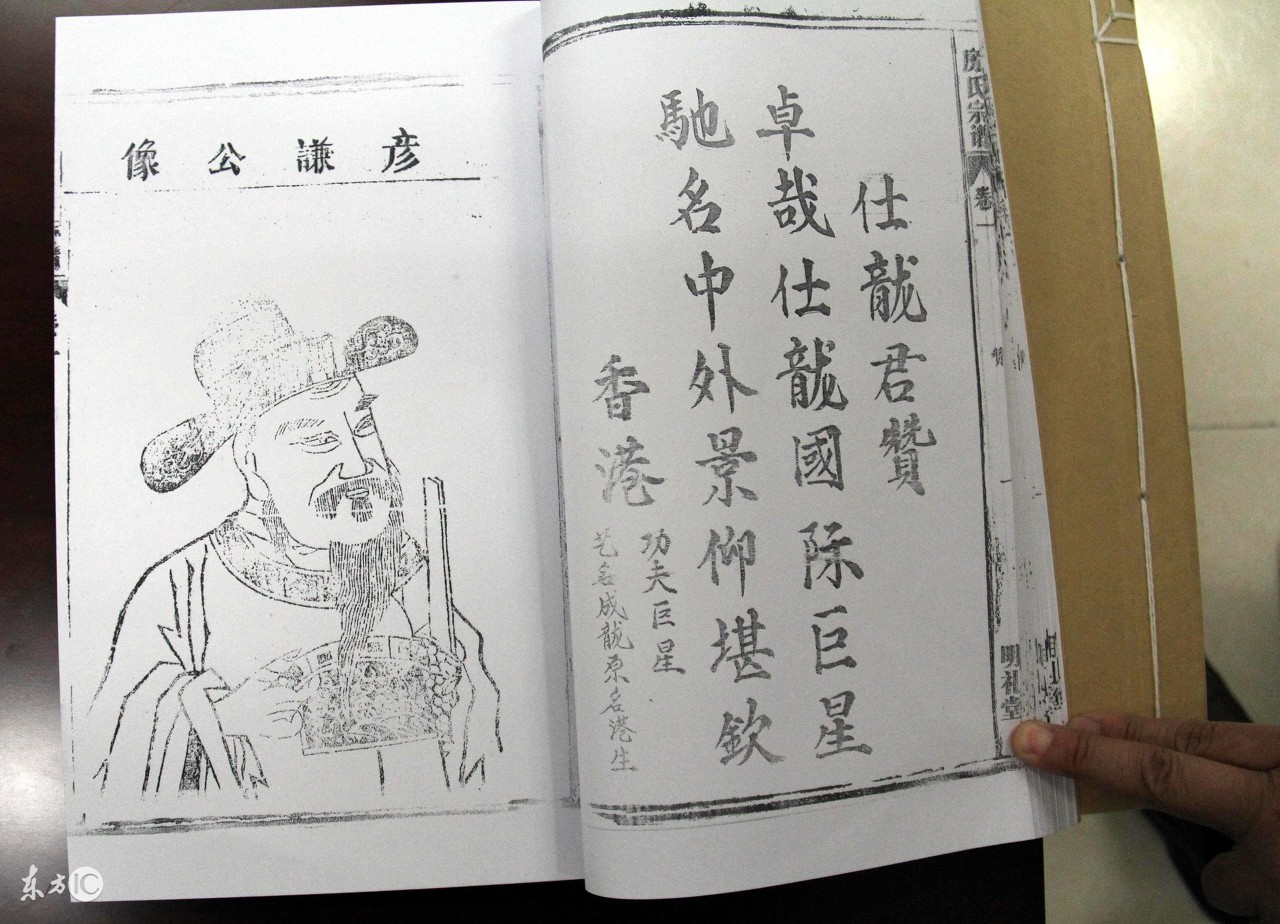 房氏宗譜
卷一
明礼堂
仕龍君贊
卓哉仕龍國际巨星
馳名中外景仰堪欽
香港
功夫巨星
艺名成龍原名港生
彦謙公像
东方IC